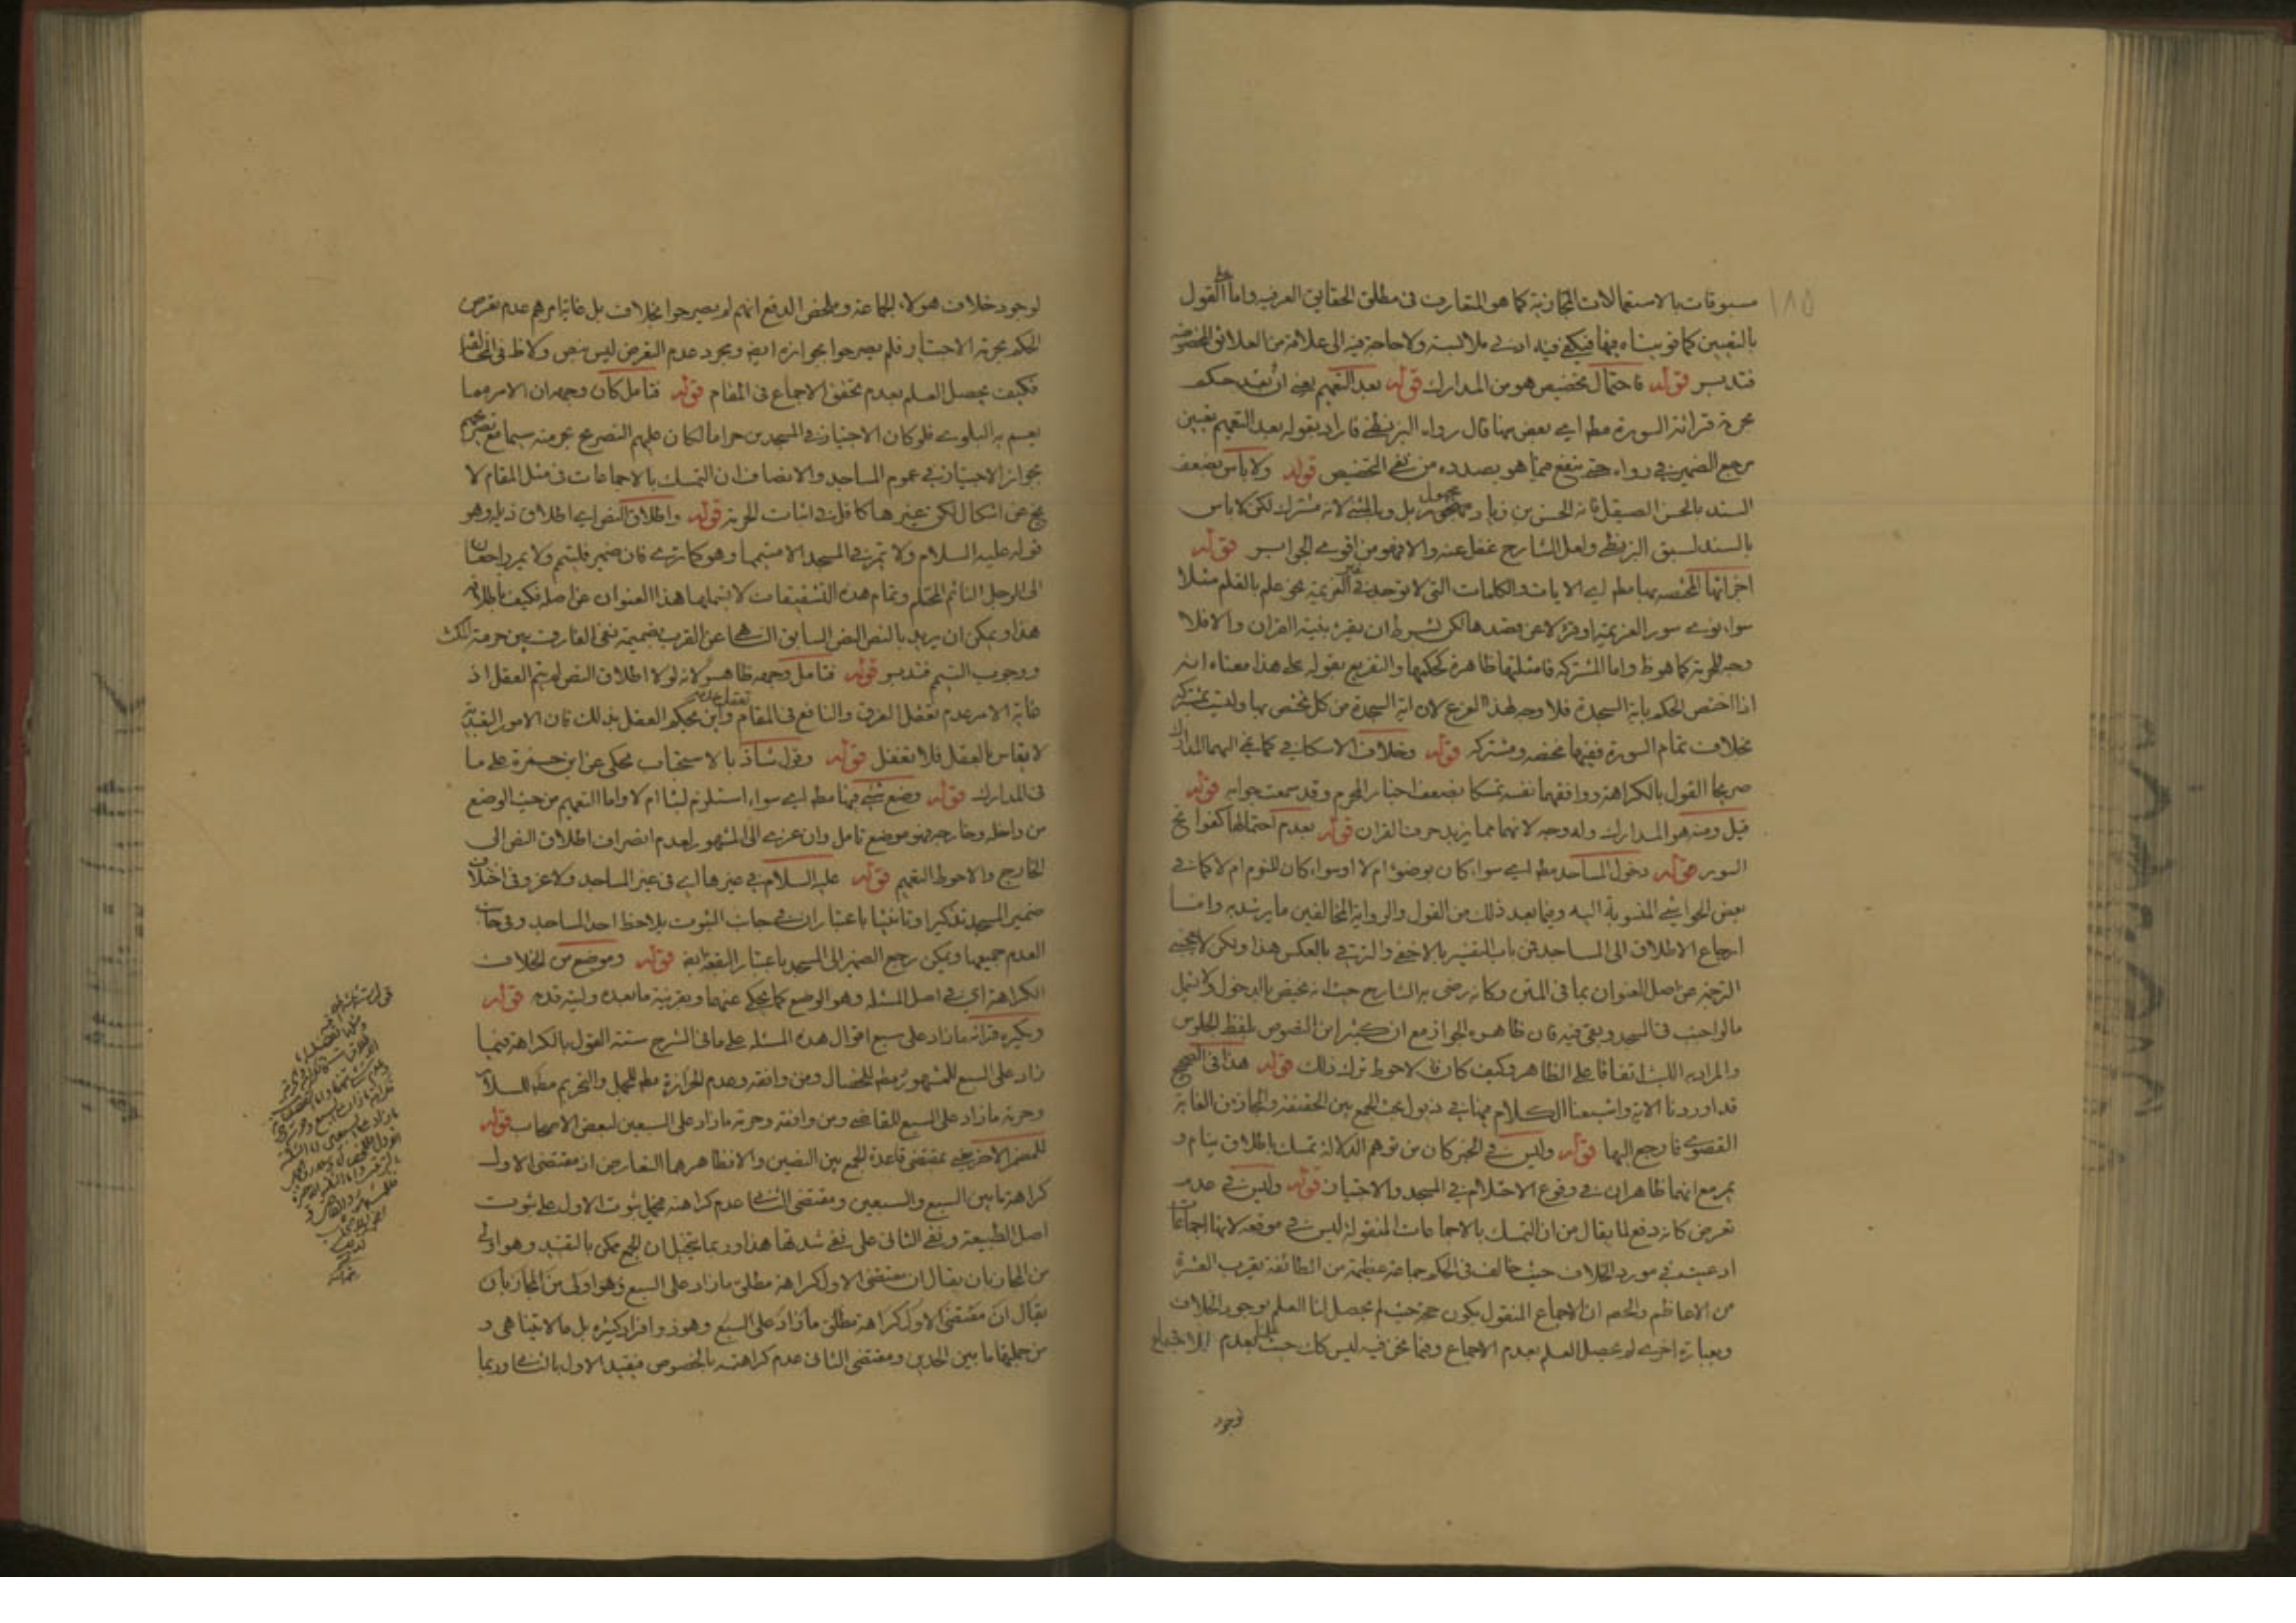 ١٨٥
مسبوقات بالاستعمالات المجازية كما هو المتعارف فى مطلق الحقايق العرفيه واما على القول
بالتعيين كما قويناه فيها فيكفى فيه ادنى ملابسة ولا حاجة فيه الى علاقة من العلائق المخصوصة
فتدبر قوله فاحتمال تخصيص هو من المدارك قوله بعد التعميم يعنى ان بعد حكم
بحرمة قرائة السورة مطه اى بعضها قال رواه البزنطى فاراد بقوله بعد التعميم تعيين
مرجع الضمير فى رواه حتى ينفع فيما هو بصدده من نفى التخصيص قوله ولا باس بضعف
السند بالحسن الصيقل فانه الحسن بن زياد مجهول بل وبالمثنى لانه مشترك لكن لا باس
بالسند لسبق البزنطى ولعل الشارح غفل عنه والا فهو من اقوى الجوابر قوله
اجزائها المختصه بها مطه اى الايات والكلمات التى لا توجد فى غير العزيمة نحو علم بالقلم مثلا
سواء نوى سور العزيمة او قرء لا عن قصدها لكن بشرط ان يقرء بنية القران والا فلا
وجه للحرمة كما هو ظ واما المشتركه فامثلتها ظاهرة كحكمها والتفريع بقوله على هذا معناه انه
اذا اختص الحكم باية السجدة فلا وجه لهذا الفرع لان اية السجدة من كل مختص بها وليست بمشتركه
بخلاف تمام السورة ففيها مختصه ومشتركه قوله وخلاف الاسكافى كما نحى اليهما المدارك
صريحا القول بالكراهة ووافقهما نفسه تمسكا بضعف اخبار المحرم وقد سمعت جوابه قوله
قيل ومنه هو المدارك وله وجه لانهما مما يزيد حرف القران قوله بعدم احتمالها كقوائح
السور قوله دخول المساجد مطه اى سواء كان بوضوء ام لا او سواء كان للنوم ام لا كما فى
بعض الحواشى المنسوبة اليه وفيما بعد ذلك من القول والرواية المخالفين ما يرشد به واما
ارجاع الاطلاق الى المساجد فمن باب التفسير بالاخفى والترقى بالعكس هذا ولكن لا يخفى
الترجيز عن اصل العنوان بما فى المتن وكانه رضى به الشارح حيث انه يختص بالدخول ولا يشمل
ما لو اجنب فى المسجد وبقى فيه فان ظاهره الجواز مع ان كثيرا من النصوص بلفظ الجلوس
والمراد به اللبث اتفاقا على الظاهر وكيف كان فالاحوط ترك ذلك قوله هذا فى الصحيح
قد اوردنا الاية واشبعنا الكلام فيها فى ذيول بحث الجمع بين الحقيقة والمجاز من الغاية
القصوى فارجع اليها قوله وليس فى الخبر كان من توهم الدلالة تمسك باطلاق ينام و
يمر مع انهما ظاهران فى وقوع الاحتلام فى المسجد والاجتياز قوله وليس فى عدم
تعرض كانه دفع لما يقال من ان التمسك بالاجماعات المنقولة ليس فى موقعه لانها اجماعات
ادعيت فى مورد الخلاف حيث خالف فى الحكم جماعة عظيمة من الطائفة يقرب العشرة
من الاعاظم والحصه ان الاجماع المنقول يكون حجة حيث لم يحصل لنا العلم بوجود الخلاف
وبعبارة اخرى لم يحصل العلم بعدم الاجماع وفيما نحن فيه ليس كك حيث نعلم بعدم الاجماع
لوجود
لوجود خلاف هولاء الجماعة وملخص الدفع انهم لم يصرحوا بخلاف بل غاية امرهم عدم تعرض
الحكم بحرمة الاجتياز فلم يصرحوا بجوازه ايضا ومجرد عدم التعرض ليس نص ولا ظ فى المخالفة
فكيف يحصل العلم بعدم تحقق الاجماع فى المقام قوله فتامل كان وجهه ان الامر مما
يعم به البلوى فلو كان الاجتياز فى المسجدين حراما لكان عليهم التصريح بحرمته سيما مع تصريحهم
بجواز الاجتياز فى عموم المساجد والانصاف ان التمسك بالاجماعات فى مثل المقام لا
يخ عن اشكال لكن غيرها كاف فى اثبات الحرمة قوله واطلاق النص اى اطلاق ذيله وهو
قوله عليه السلام ولا يمر فى المسجد الا متيمما وهو كما ترى فان ضمير فليتيمم ولا يمر راجعان
الى الرجل النائم المحتلم وتمام هذه التشقيقات لا يشملها هذا العنوان عن اصله فكيف باطلاقه
هذا ويمكن ان يريد بالنص النص السابق الناهى عن القرب بضميمة نفى الفارق بين حرمة المكث
ووجوب التيمم فتدبر قوله فتامل وجهه ظاهر لانه لولا اطلاق النص لم يتم العقل اذ
غاية الامر عدم تعقل الفرق والنافع فى المقام تعقل عدمه واين يحكم العقل بذلك فان الامور التعبدية
لا يقاس بالعقل فلا تغفل قوله وقول شاذ بالاستحباب محكى عن ابن حمزة على ما
فى المدارك قوله وضع شئ فيها مطه اى سواء استلزم لبثا ام لا واما التعميم من حيث الوضع
من داخله وخارجه فهو موضع تامل وان عزى الى المشهور لعدم انصراف اطلاق النص الى
الخارج والاحوط التعميم قوله عليه السلام فى غيرها اى فى غير المساجد ولا غرو فى اختلاف
ضمير المسجد تذكيرا وتانيثا باعتبار ان فى جانب الثبوت يلاحظ احد المساجد وفى جانب
العدم جميعها ويمكن رجع الضمير الى المسجد باعتبار البقعة ايضا قوله وموضع من الخلاف
الكراهة اى فى اصل المسئلة وهو الوضع كما يحكى عنهما وبقرينة ما بعده وليته قدم قوله
ويكره قرائة ما زاد على سبع اقوال هذه المسئلة على ما فى الشرح ستة القول بالكراهة فيما
زاد على السبع للمشهور مطه للخصال ومن وافقه وعدم الحزازة مطه للجمل والتحريم مطه للسلار
وحرمة ما زاد على السبع للقاضى ومن وافقه وحرمة ما زاد على السبعين لبعض الاصحاب قوله
للمضمر الاخر على مقتضى قاعدة الجمع بين النصين والا فظاهرهما التعارض اذ مقتضى الاول
كراهة ما بين السبع والسبعين ومقتضى الثانى عدم كراهته فيحمل ثبوت الاول على ثبوت
اصل الطبيعة ونفى الثانى على نفى شدتها هذا وربما يتخيل ان الجمع ممكن بالتقييد وهو اولى
من المجاز بان يقال ان مقتضى الاول كراهة مطلق ما زاد على السبع وهو اولى من المجاز بان
يقال ان مقتضى الاول كراهة مطلق ما زاد على السبع وهو ذو افراد كثيرة بل ما لا يتناهى و
من جملتها ما بين الحدين ومقتضى الثانى عدم كراهته بالخصوص فيقيد الاول بالثانى وربما